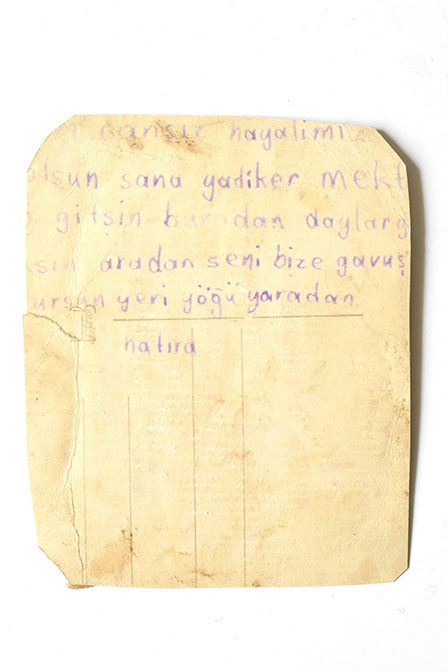 cansız hayalimiz
olsun sana yadiker mekt
gitsin buradan daylarg
sın aradan seni bize gavuş
ursun yeri yöğü yaradan
hatıra